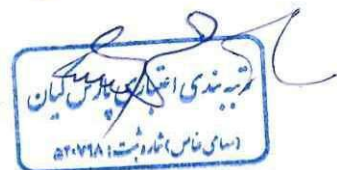 رتبه بندی اعتباری پارس کیان
(سهامی خاص) شماره ثبت: ۵۲۰۷۹۸